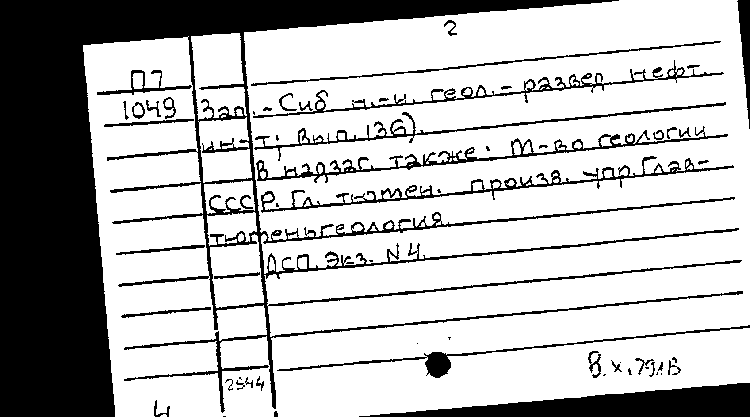 2
П7
1049 Зап.-Сиб н.-и. геол.-развед нефт.
ин-т; Вып. 136).
В надзаг. также: М-во геологии
СССР. Гл. тюмен. произв. упр. Глав-
тюменьгеология.
ДСП. Экз. N4.
2544
4